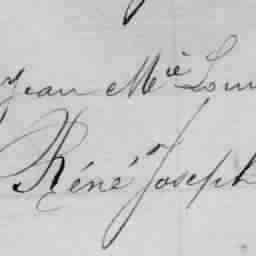 Jean Mie Louis
Réné Joseph